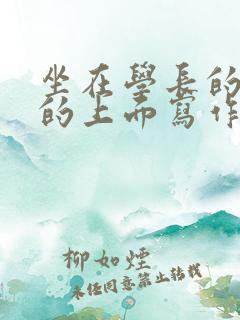 坐在學長的
的上面寫作
柳如煙
未經同意禁止轉載